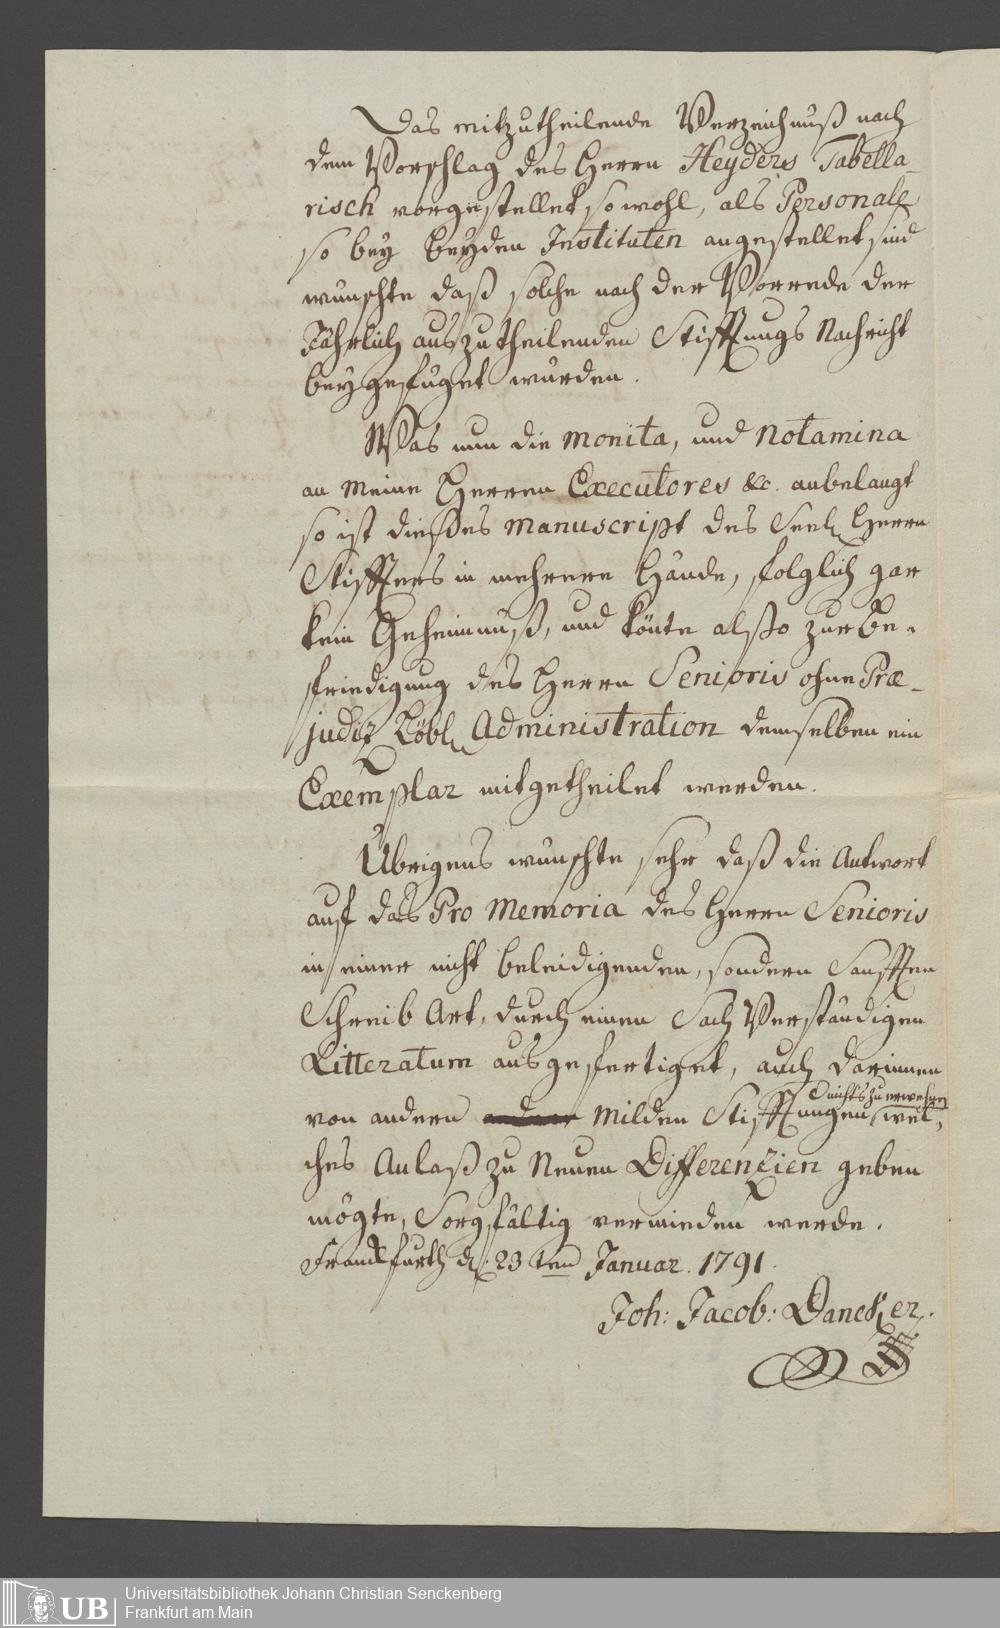 Das mitzutheilende Verzeichnuß nach
dem Vorschlag des Herrn Heyders Tabella-
risch vorgestellet so wohl, als Personale
so bey beyden Instituten angestellet sind
wunschte daß solche nach der Vorrede der
Jährlich auszutheilenden Stifftungs Nachricht
beygefuget wurden.
Was nun die monita, und Notamina
an meine Herren Executores &c. anbelangt
so ist dießes manuscript des Seel. Herrn
Stiffters in mehrere Hände, folglich gar
kein Geheimnuß, und könte alßo zur be-
friedigung des Herrn Senioris ohne Præ-
judiz Löbl. Administration demselben ein
Exemplar mitgetheilet werden.
Übrigens wunschte sehr daß die Antwort
auf das Pro Memoria des Herrn Senioris
in einer nicht beleidigenden, sondern Sanfften
Schreib Art, durch einen Sach Verständigen
Litteratum ausgefertiget, auch darinnen
nichts zu erwehnen
von andern ander milden Stifftungen, wel-
ches Anlaß zu Neuen Differenzien geben
mögte, Sorgfältig vermieden werde.
Franckfurth d. 23ten Januar. 1791.
Joh: Jacob: Dancker.
UB
Universitätsbibliothek Johann Christian Senckenberg
Frankfurt am Main